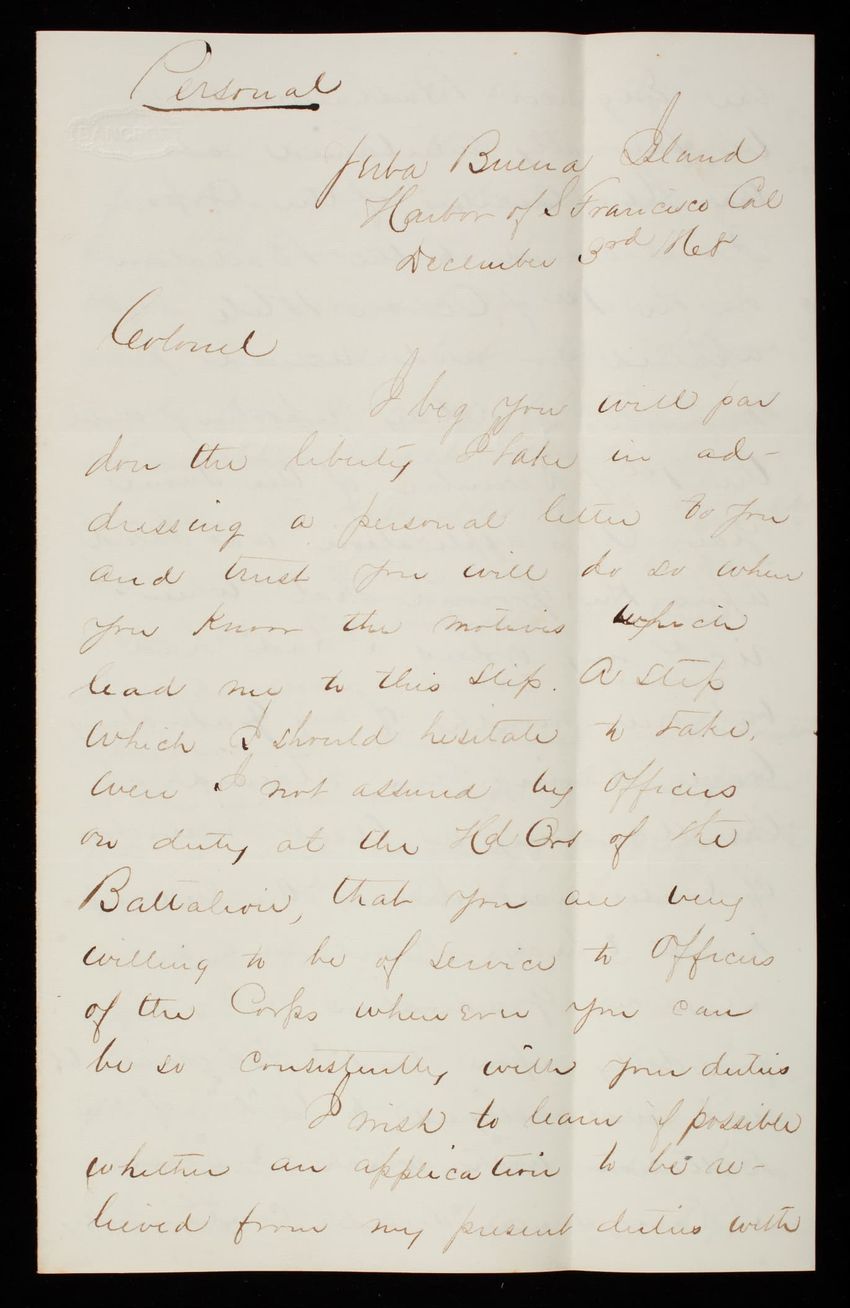 Personal
BANCROFT
Yerba Buena Island
Harbor of S Francisco Cal
December 3rd 1868
Colonel
I beg you will par
don the liberty I take in ad-
dressing a personal letter to you
and trust you will do so when
you know the motives which
lead me to this step. A step
which I should hesitate to take,
were I not assured by officers
on duty at the Hd Qrs of the
Battalion, that you are very
willing to be of service to Officers
of the Corps when ever you can
be so consistently with your duties
I wish to learn if possible
whether an application to be re-
lieved from my present duties with